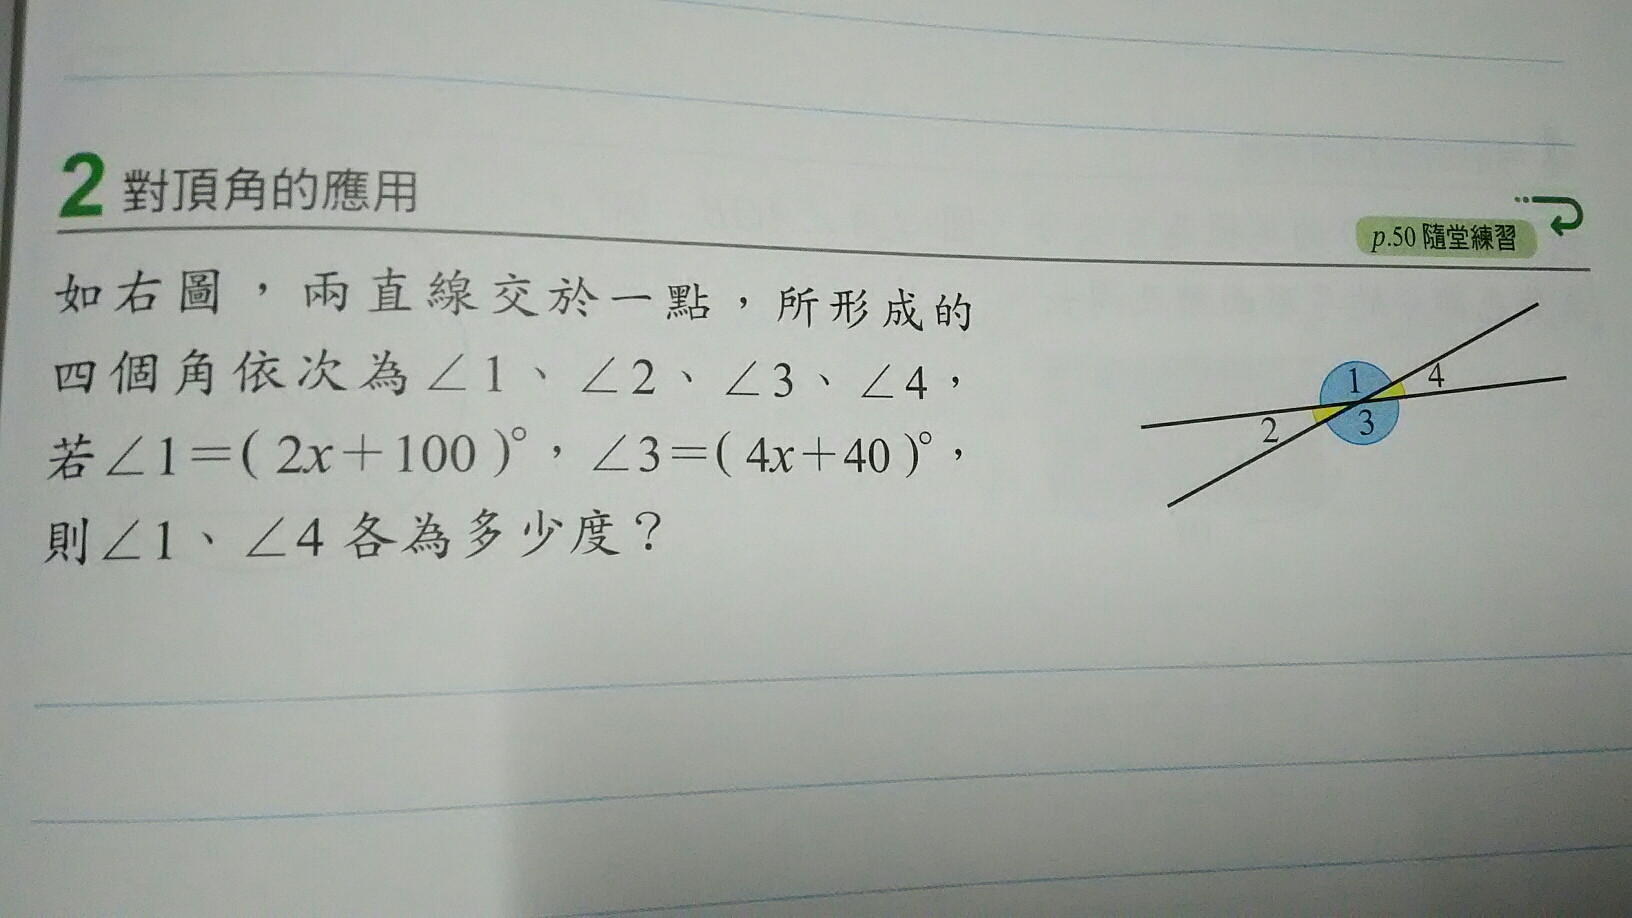 2 對頂角的應用
p.50 隨堂練習
如右圖，兩直線交於一點，所形成的
四個角依次為∠1、∠2、∠3、∠4，
若∠1＝( 2x＋100 )°，∠3＝( 4x＋40 )°，
則∠1、∠4 各為多少度？
1
4
2
3